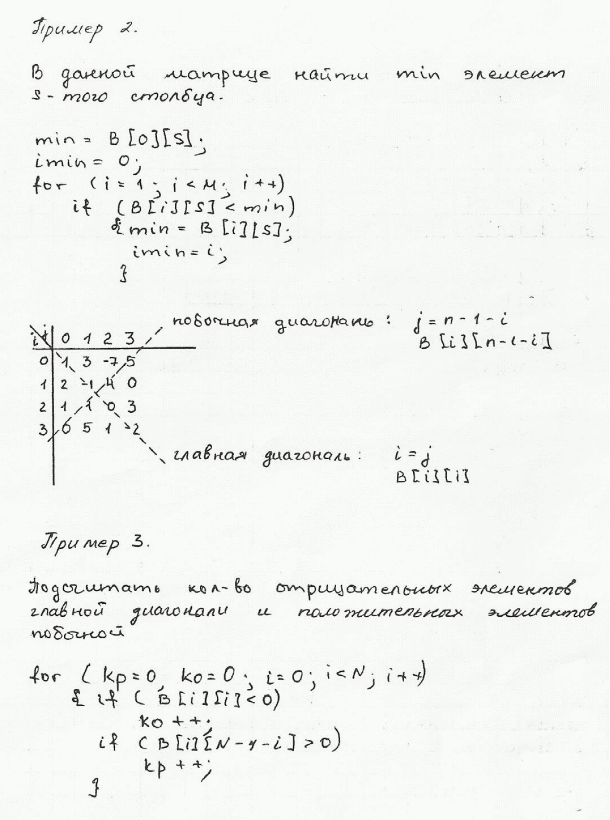 Пример 2.
В данной матрице найти min элемент
s-того столбца.
min = B[0][S];
imin = 0;
for (i=1; i<M; i++)
if (B[i][S]<min)
{min = B[i][S];
imin=i;
}
побочная диагональ: j=n-1-i
B[i][n-1-i]
i j 0 1 2 3
0 1 3 -7 5
1 2 -1 4 0
2 1 1 0 3
3 0 5 1 -2
главная диагональ: i=j
B[i][i]
Пример 3.
Подсчитать кол-во отрицательных элементов
главной диагонали и положительных элементов
побочной
for (kp=0, ko=0; i=0; i<N; i++)
{ if (B[i][i]<0)
ko++;
if (B[i][N-1-i]>0)
kp++;
}